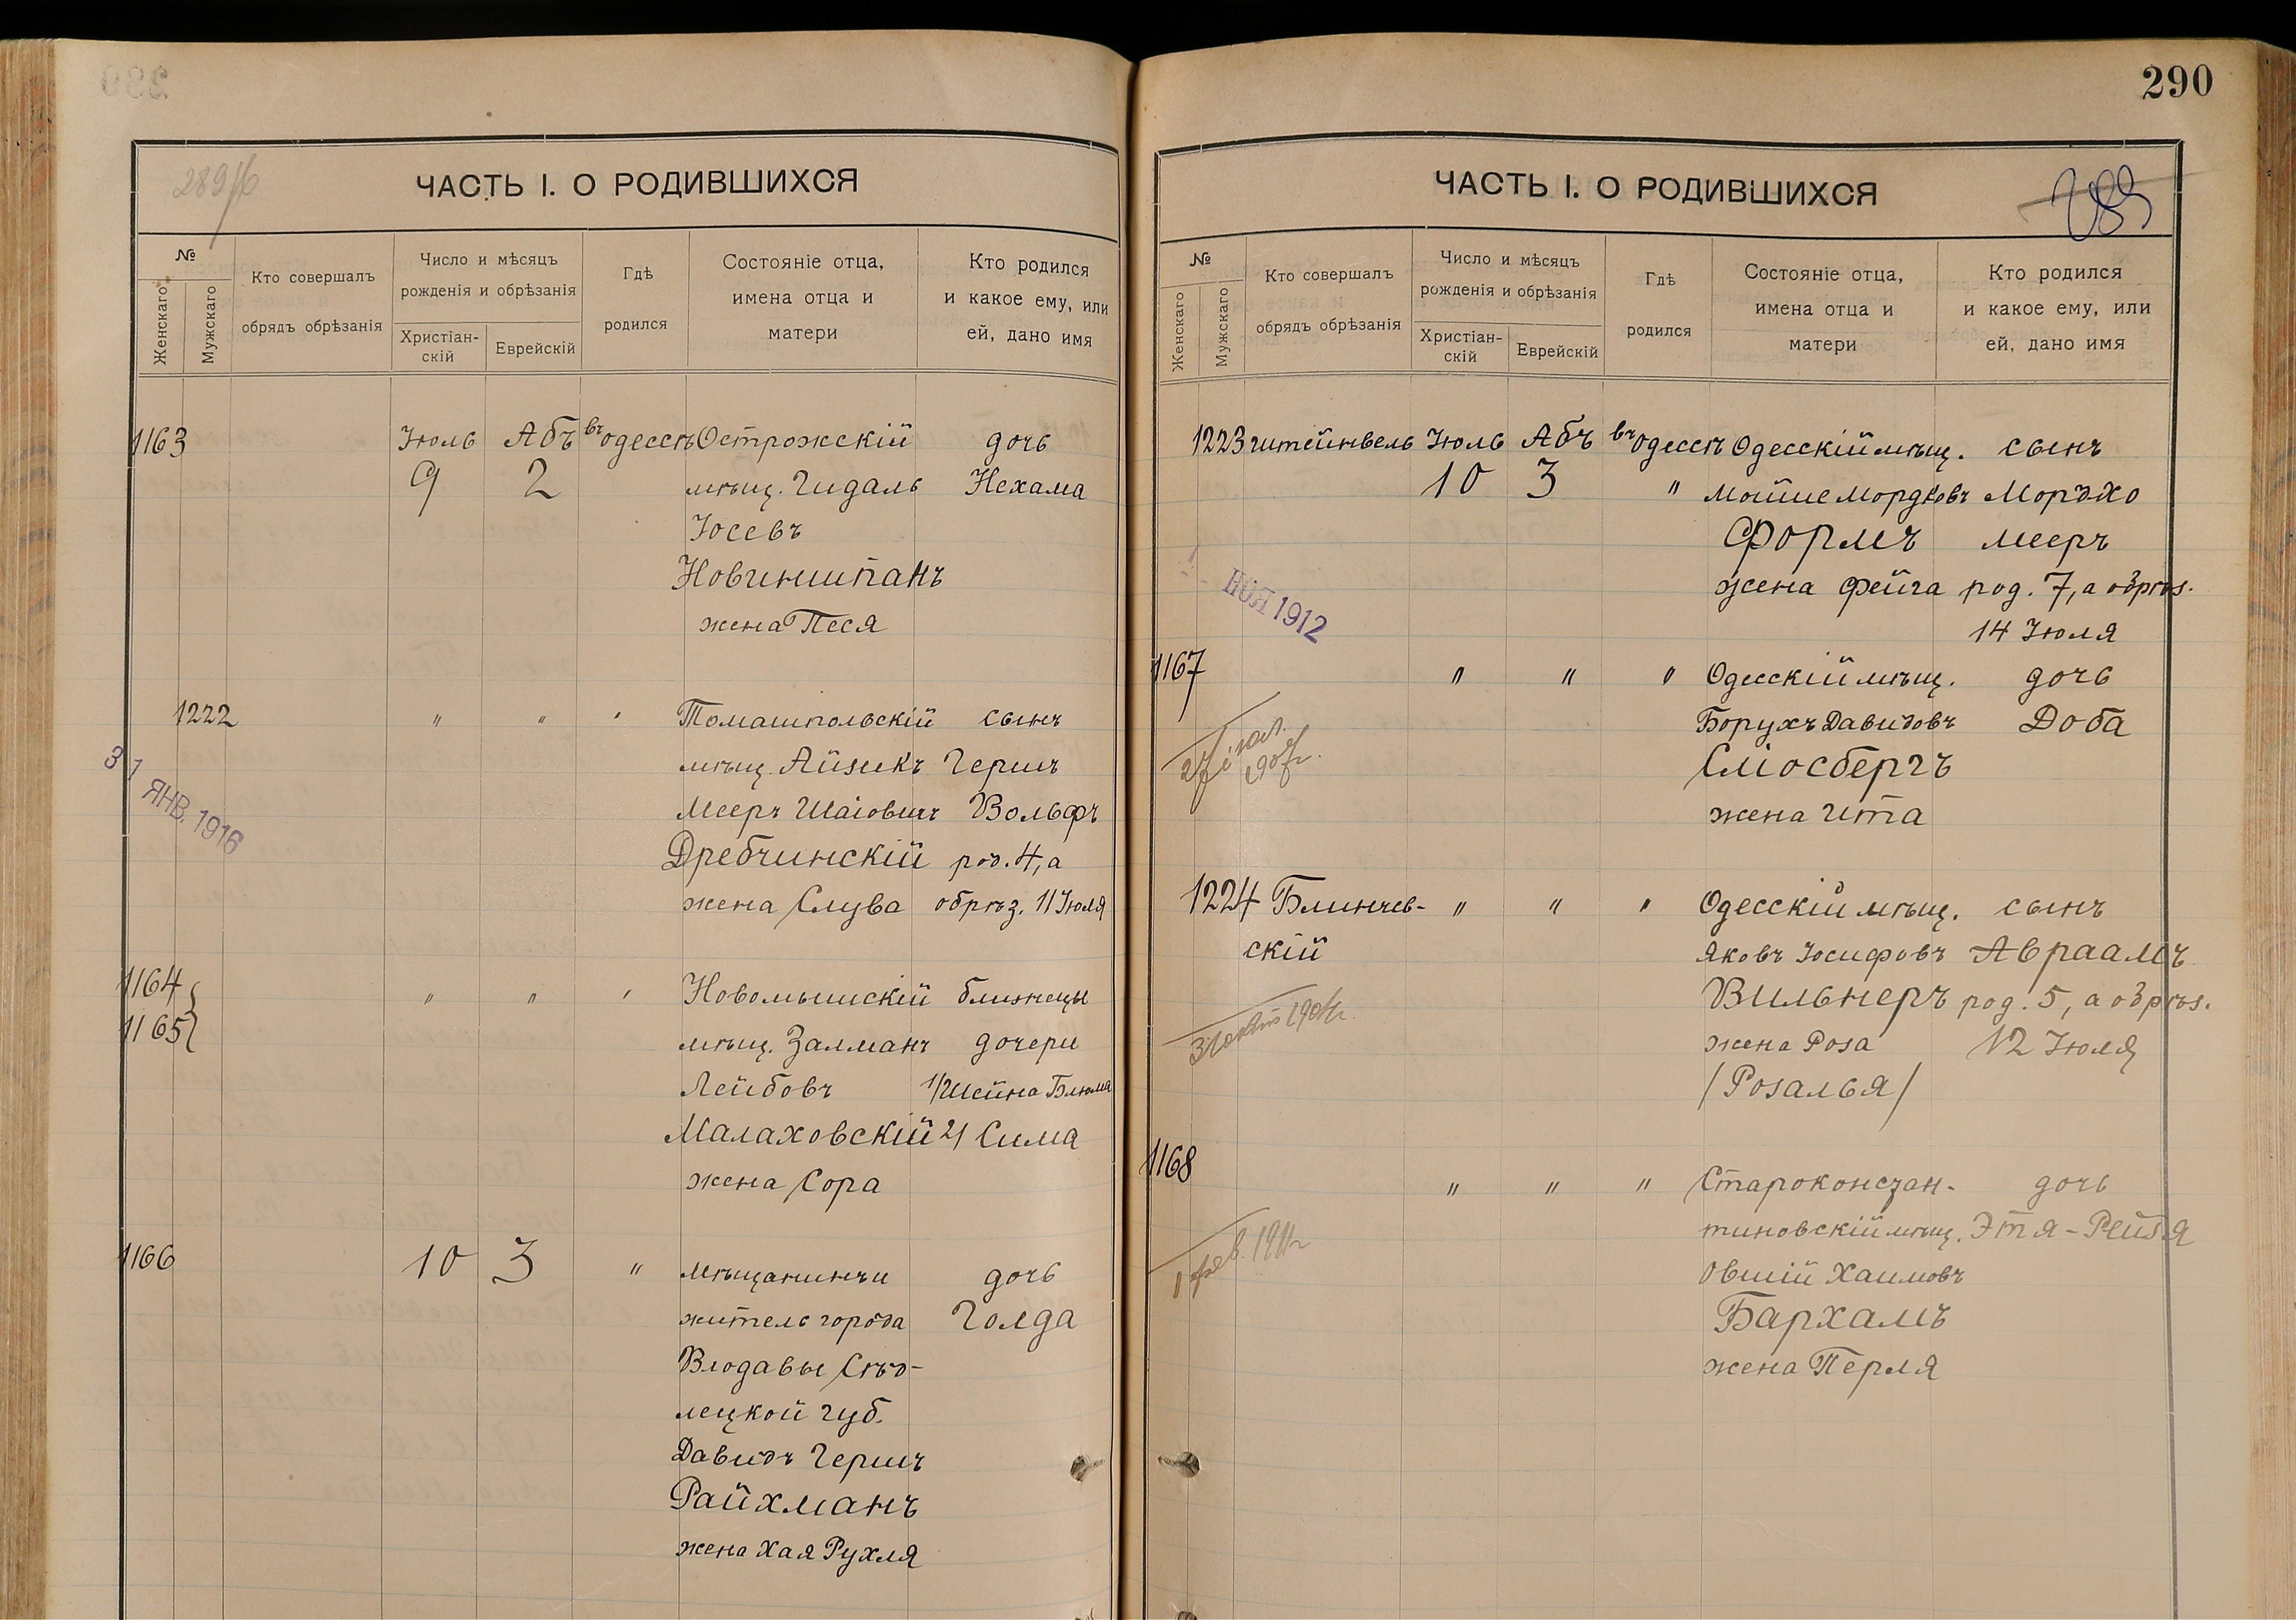 290
289/б
ЧАСТЬ I. О РОДИВШИХСЯ
№
Женскаго
Мужскаго
Кто совершалъ
обрядъ обрѣзанія
Число и мѣсяцъ
рожденія и обрѣзанія
Христіан-
скій
Еврейскій
Гдѣ
родился
Состояніе отца,
имена отца и
матери
Кто родился
и какое ему, или
ей, дано имя
1163 Іюль Абъ въ Одессѣ Острожскій дочь
9 2 мѣщ. Гидаль Нехама
Іосевъ
Новиншпанъ
жена Песя
1222 " " " Томашпольскій сынъ
мѣщ. Айзикъ Гершъ
Мееръ Шаіовичъ Вольфъ
Дребчинскій род. 4, а
жена Слува обрѣз. 11 Іюля
31 ЯНВ. 1916
1164 " " " Новомышскій близнецы
1165 мѣщ. Залманъ дочери
Лейбовъ 1/ Шейна Блюма
Малаховскій 2/ Сима
жена Сора
1166 10 3 " мѣщанинъ и дочь
житель города Голда
Влодавы Сѣд-
лецкой губ.
Давидъ Гершъ
Райхманъ
жена Хая Рухля
290
ЧАСТЬ I. О РОДИВШИХСЯ
289
№
Женскаго
Мужскаго
Кто совершалъ
обрядъ обрѣзанія
Число и мѣсяцъ
рожденія и обрѣзанія
Христіан-
скій
Еврейскій
Гдѣ
родился
Состояніе отца,
имена отца и
матери
Кто родился
и какое ему, или
ей, дано имя
1223 Штейнвель Іюль Абъ въ Одессѣ Одесскій мѣщ. сынъ
10 3 " Мойше Мордковъ Мордхо
Формъ Мееръ
жена Фейга род. 7, а обрѣз.
14 Іюля
НОЯ 1912
1167 " " " Одесскій мѣщ. дочь
Борухъ Давидовъ Доба
Сліосбергъ
жена Ита
1224 Блинчев- " " " Одесскій мѣщ. сынъ
скій Яковъ Іосифовъ Авраамъ
Вильнеръ род. 5, а обрѣз.
жена Роза 12 Іюля
/Розалья/
1168 " " " Староконстан- дочь
тиновскій мѣщ. Этя-Рейзя
Овшій Хаимовъ
1 фев. 1911 г
Бархамъ
жена Перля